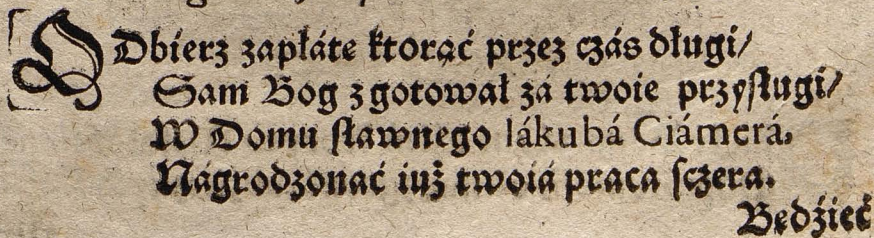 ODbierz zapłáte ktorąć przez czás długi/
Sam Bog zgotował zá twoie przysługi/
W Domu sławnego Iákubá Ciámerá,
Nágrodzonać iuż twoiá praca sczera.
Będźieć